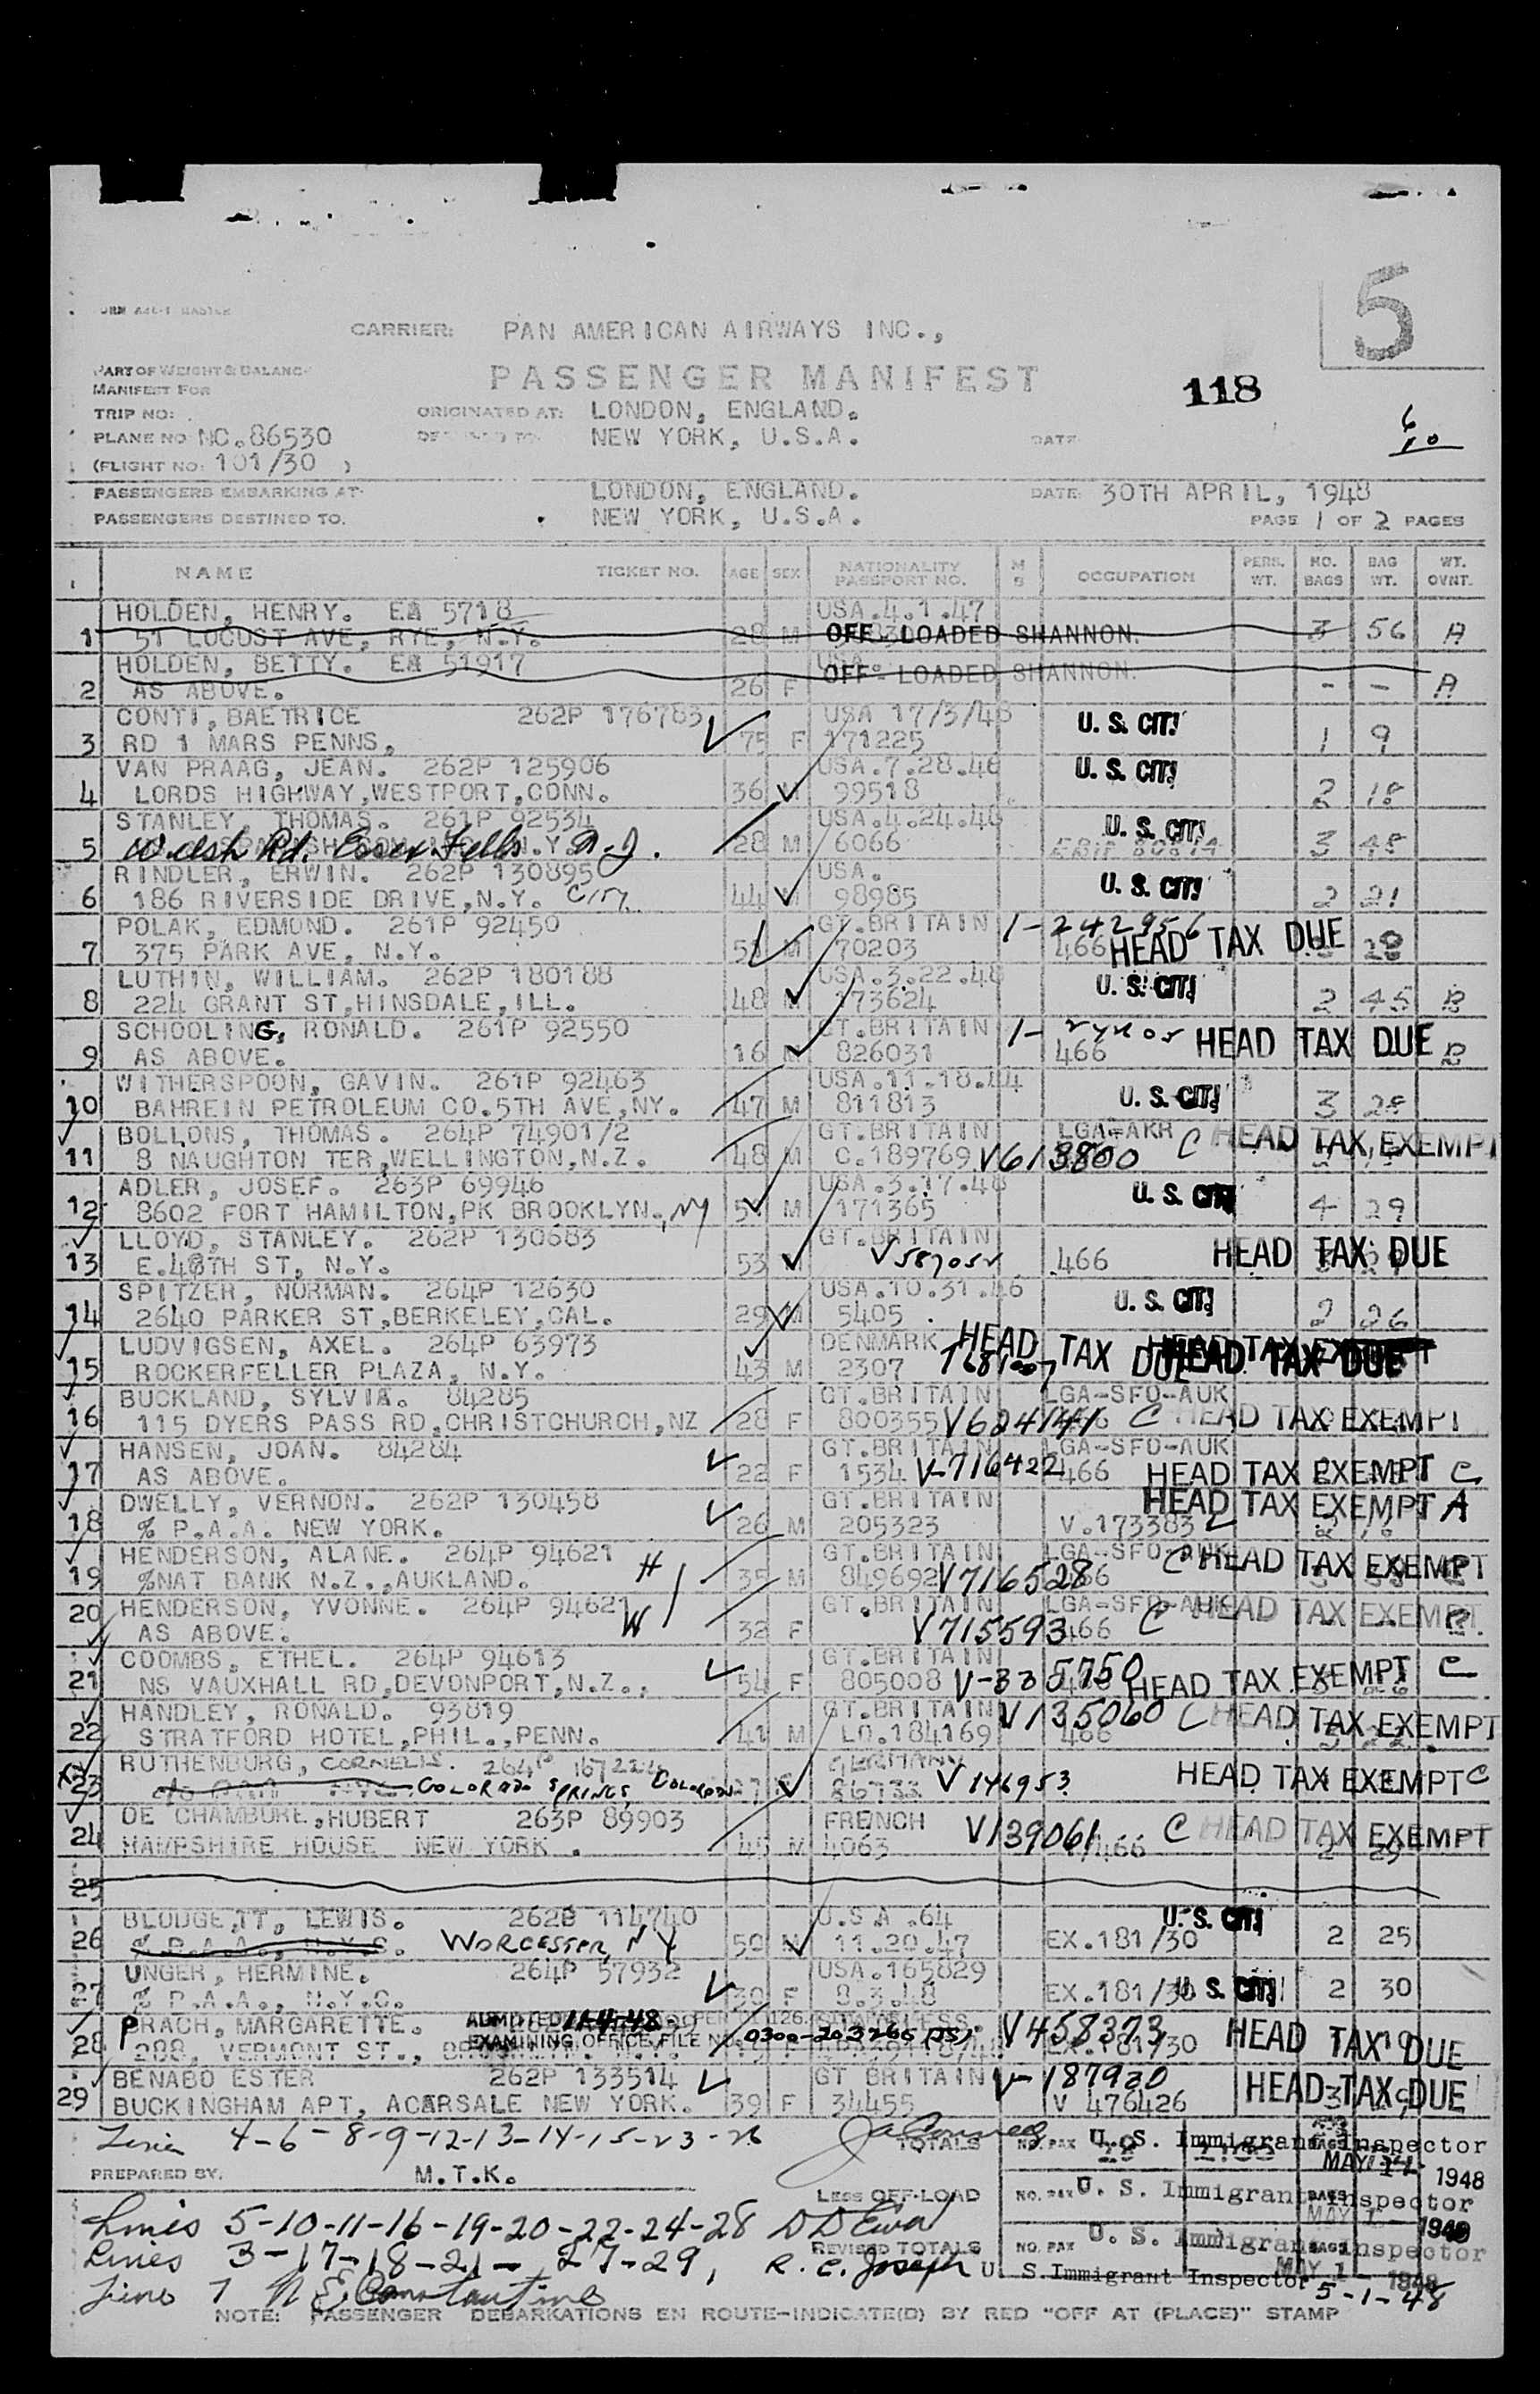 5
CARRIER: PAN AMERICAN AIRWAYS INC.,
PART OF WEIGHT & BALANCE
MANIFEST FOR
PASSENGER MANIFEST
118
TRIP NO:
ORIGINATED AT: LONDON, ENGLAND.
PLANE NO NC.86530
NEW YORK, U.S.A.
DATE
(FLIGHT NO: 101/30 )
PASSENGERS EMBARKING AT LONDON, ENGLAND. DATE: 30TH APRIL, 1948
PASSENGERS DESTINED TO. NEW YORK, U.S.A. PAGE 1 OF 2 PAGES
NAME TICKET NO. AGE SEX NATIONALITY PASSPORT NO. M S OCCUPATION PERS. WT. NO. BAGS BAG WT. WT. OVNT.
HOLDEN, HENRY. EA 5718 USA.4.1.47
1 51 LOCUST AVE, RYE, N.Y. 28 M OFF - LOADED SHANNON. 3 56 A
HOLDEN, BETTY. EA 51917 USA.
2 AS ABOVE. 26 F OFF - LOADED SHANNON. - - A
CONTI, BAETRICE 262P 176783 USA 17/3/48 U. S. CIT.
3 RD 1 MARS PENNS, 75 F 171225 1 9
VAN PRAAG, JEAN. 262P 125906 USA.7.28.46 U. S. CIT.
4 LORDS HIGHWAY,WESTPORT,CONN. 36 99518 2 18
STANLEY, THOMAS. 261P 92534 USA.4.24.46 U. S. CIT.
5 Welsh Rd. Essex Fells N.J. 28 M 6066 3 48
RINDLER, ERWIN. 262P 130895 USA. U. S. CIT.
6 186 RIVERSIDE DRIVE,N.Y. City 44 M 98985 2 21
POLAK, EDMOND. 261P 92450 GT.BRITAIN 1-242956
7 375 PARK AVE, N.Y. M 70203 466 HEAD TAX DUE
LUTHIN, WILLIAM. 262P 180188 USA.3.22.48 U. S. CIT.
8 224 GRANT ST,HINSDALE,ILL. 48 M 173624 2 45 B
SCHOOLING, RONALD. 261P 92550 GT.BRITAIN 1-
9 AS ABOVE. 16 M 826031 466 HEAD TAX DUE B
WITHERSPOON, GAVIN. 261P 92463 USA.11.18.44
10 BAHREIN PETROLEUM CO.5TH AVE,NY. 47 M 811813 U. S. CIT. 3 28
BOLLONS, THOMAS. 264P 74901/2 GT.BRITAIN LGA-AKR C HEAD TAX EXEMPT
11 8 NAUGHTON TER,WELLINGTON,N.Z. 48 M C.189769 V613800
ADLER, JOSEF. 263P 69946 USA.3.17.48 U. S. CIT.
12 8602 FORT HAMILTON,PK BROOKLYN., NY M 171365 4 29
LLOYD, STANLEY. 262P 130683 GT.BRITAIN
13 E.48TH ST, N.Y. 53 M 466 HEAD TAX DUE
SPITZER, NORMAN. 264P 12630 USA.10.31.46
14 2640 PARKER ST,BERKELEY,CAL. 29 M 5405 U. S. CIT. 2 26
LUDVIGSEN, AXEL. 264P 63973 DENMARK HEAD TAX DUE
15 ROCKERFELLER PLAZA, N.Y. 43 M 2307 HEAD TAX DUE
BUCKLAND, SYLVIA. 84285 GT.BRITAIN LGA-SFO-AUK
16 115 DYERS PASS RD,CHRISTCHURCH,NZ 28 F 800355 V624141 C HEAD TAX EXEMPT
HANSEN, JOAN. 84284 GT.BRITAIN LGA-SFO-AUK
17 AS ABOVE. 22 F 1534 V-716422 466 HEAD TAX EXEMPT C
DWELLY, VERNON. 262P 130458 GT.BRITAIN HEAD TAX EXEMPT A
18 % P.A.A. NEW YORK. 26 M 205323 V.173383
HENDERSON, ALANE. 264P 94621 H GT.BRITAIN LGA-SFO-AUK C HEAD TAX EXEMPT
19 %NAT BANK N.Z.,AUKLAND. 35 M 849692 V716528
HENDERSON, YVONNE. 264P 94621 W GT.BRITAIN LGA-SFO-AUK HEAD TAX EXEMPT
20 AS ABOVE. 32 F V715593 466 C
COOMBS, ETHEL. 264P 94613 GT.BRITAIN
21 NS VAUXHALL RD,DEVONPORT,N.Z., 54 F 805008 V-335750 HEAD TAX EXEMPT C
HANDLEY, RONALD. 93819 GT.BRITAIN V135060 C HEAD TAX EXEMPT
22 STRATFORD HOTEL,PHIL.,PENN. 41 M LO.184169 466
RUTHENBURG, CORNELIS. 264P 167224 GERMANY
23 COLORADO SPRINGS, COLORADO 86733 V146953 HEAD TAX EXEMPT C
DE CHAMBURE,HUBERT 263P 89903 FRENCH V139061 C HEAD TAX EXEMPT
24 HAMPSHIRE HOUSE NEW YORK . 45 M 4063 466 2 29
25
BLODGETT, LEWIS. 262B 114740 U.S.A .64 U. S. CIT.
26 % P.A.A., N.Y.C. WORCESTER, NY 50 M 11.20.47 EX.181/30 2 25
UNGER, HERMINE. 264P 57932 USA.165829
27 % P.A.A., N.Y.C. 39 F 8.3.48 EX.181/30 U. S. CIT. 2 30
PRACH, MARGARETTE. ADMITTED V458373 HEAD TAX DUE
28 288, VERMONT ST., EXAMINING OFFICE FILE NO. 0300-203266 EX.181/30
BENABO ESTER 262P 133514 GT BRITAIN V-187920
29 BUCKINGHAM APT, ACARSALE NEW YORK. 39 F 34455 V 476426 HEAD TAX DUE
Lines 4-6-8-9-12-13-14-15-23-26 TOTALS NO. PAX U. S. Immigrant Inspector
MAY 1948
PREPARED BY. M.T.K.
LESS OFF-LOAD NO. PAX U. S. Immigrant Inspector
MAY 1 1948
Lines 5-10-11-16-19-20-22-24-28 D D Ewa
REVISED TOTALS NO. PAX U. S. Immigrant Inspector
MAY 1 - 1948
Lines 3-17-18-21-27-29, R. E. Joseph U. S. Immigrant Inspector
5-1-48
Line 7 N E Constantine
NOTE: PASSENGER DEBARKATIONS EN ROUTE-INDICATE(D) BY RED "OFF AT (PLACE)" STAMP